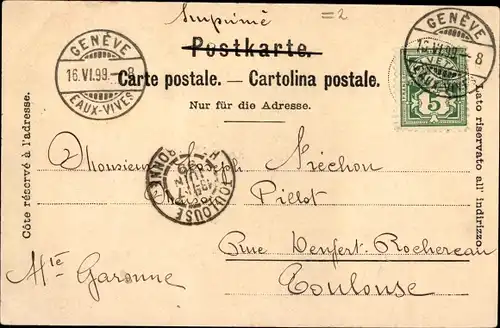 Imprimé
=2
GENÈVE
16.VI.99.-8
EAUX-VIVES
Postkarte.
Carte postale. — Cartolina postale.
Nur für die Adresse.
GENÈVE
16.VI.99.-8
EAUX-VIVES
5
Côte réservé à l'adresse.
Lato riservato all' indirizzo.
Monsieur Joseph Fréchon
TOULOUSE
Pillot
Rue Denfert-Rochereau
Hte Garonne
Toulouse